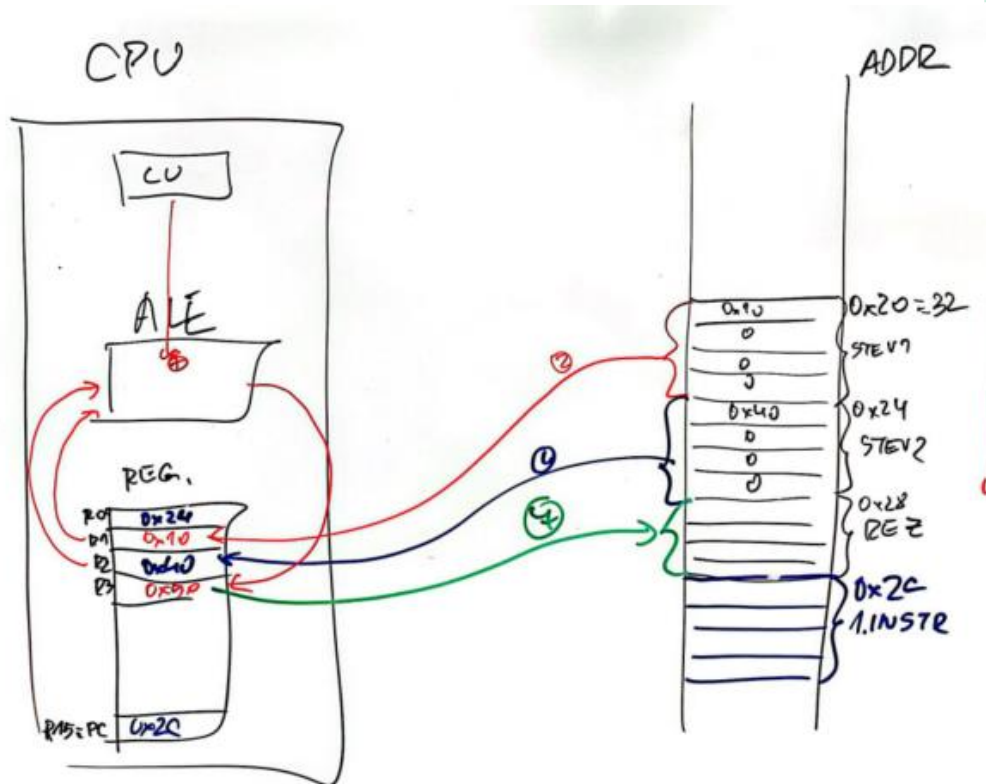 CPU
ADDR
CU
ALE
+
REG.
R0 0x24
R1 0x10
R2 0x40
R3 0x50
R15=PC 0x2C
2
4
0x10
0
0
0
0x40
0
0
0
0x20=32
STEV1
0x24
STEV2
0x28
REZ
0x2C
1.INSTR